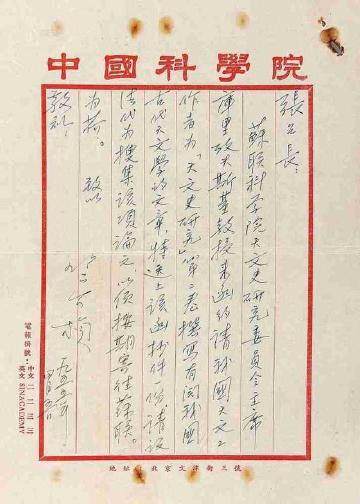 中國科學院
張台長：
蘇联科学院天文史研究委員会主席
庫里考夫斯基教授来函約請我國天文工
作者为「天文史研究」第二卷撰写有関我國
古代天文学的文章，特送上该函抄件一份，請设
法代为搜集该項論文，以便按期寄往蘇联。
为荷。 致以
敬礼！
竺可楨
一九五五年
電報掛號：中文二一二三三
英文SINACADEMY
地址：北京文津街三號